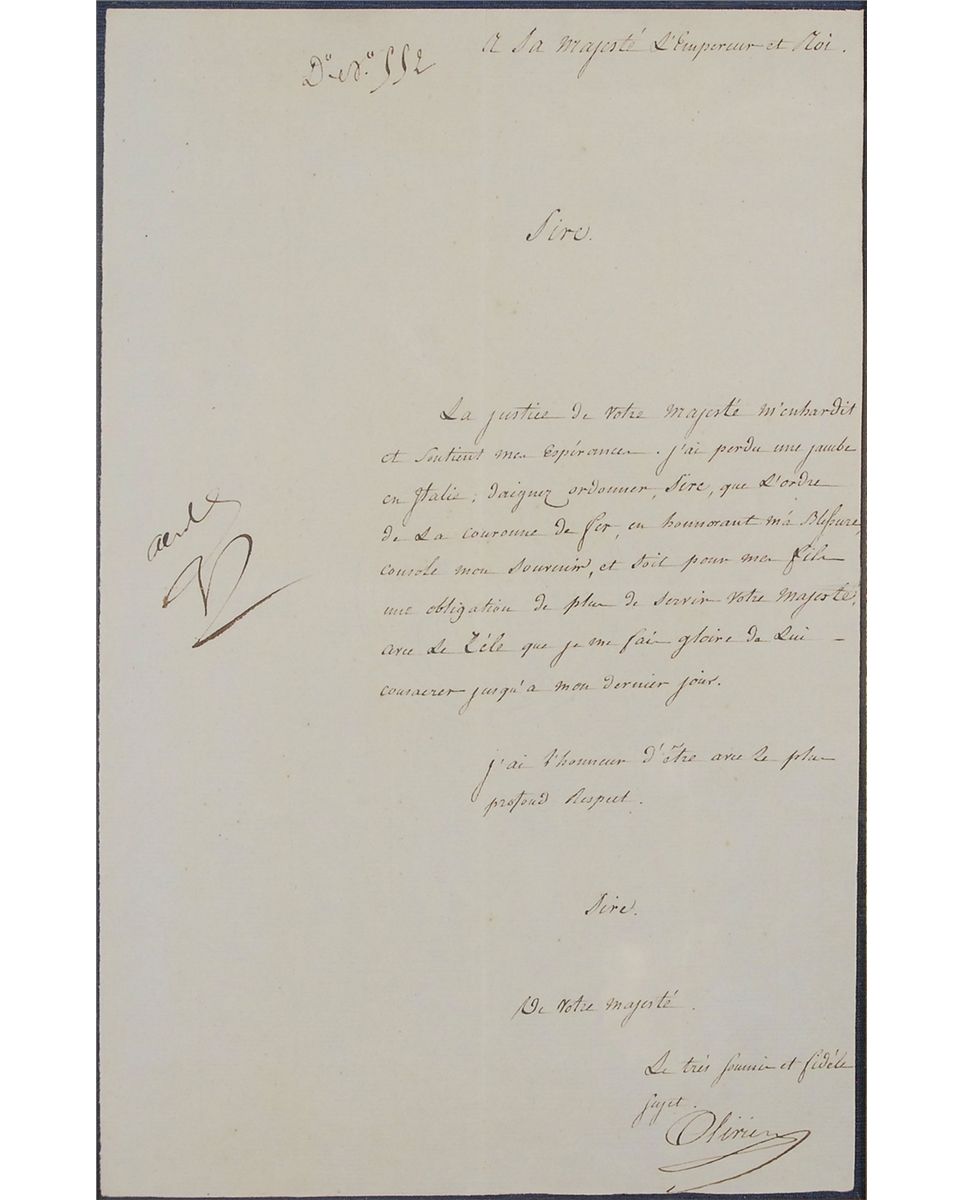 A Sa Majesté L'Empereur et Roi.
552
Sire.
La justice de Votre Majesté m'enhardit
et Soutient mes Espérances. j'ai perdu une jambe
en Italie; daignez ordonner, Sire, que L'ordre
de La couronne de fer, en honnorant ma Blessure,
console mon Souvenir, et soit pour mes fils
une obligation de plus de servir Votre Majesté,
avec Le Zéle que je me fais gloire de Lui
consacrer jusqu'a mon dernier jour.
j'ai l'honneur d'être avec le plus
profond Respect.
Sire.
De Votre Majesté.
Le trés soumis et fidéle
sujet.